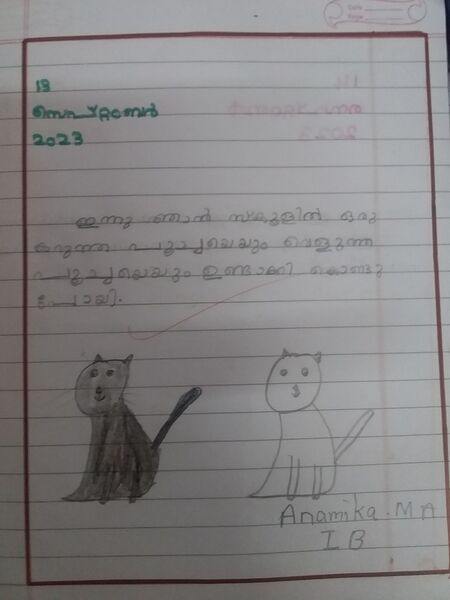 Date
Page
13
സെപ്റ്റംബർ
2023
ഇന്നു ഞാൻ സ്കൂളിൽ ഒരു
കറുത്ത പൂച്ചയെയും വെളുത്ത
പൂച്ചയെയും ഉണ്ടാക്കി കൊണ്ടു
പോയി.
Anamika. M A
I B